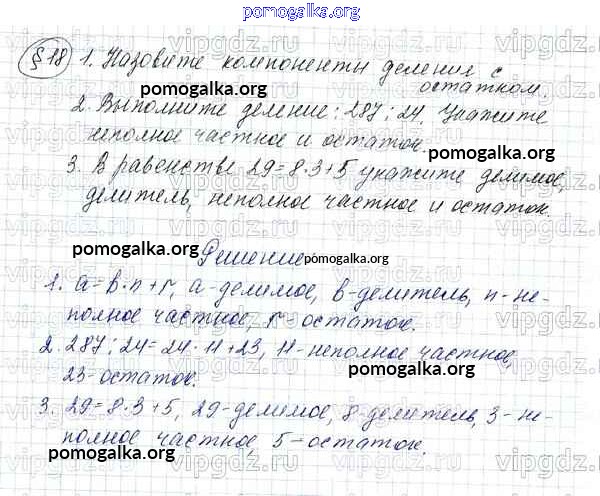 pomogalka.org
§18 1. Назовите компоненты деления с
остатком.
pomogalka.org
2. Выполните деление: 287 : 24. Укажите
неполное частное и остаток.
pomogalka.org
3. В равенстве 29 = 8·3+5 укажите делимое,
делитель, неполное частное и остаток.
pomogalka.org
Решение
pomogalka.org
1. a = b·n + r, a - делимое, b - делитель, n - не-
полное частное, r - остаток.
2. 287 : 24 = 24 · 11 + 23, 11 - неполное частное,
23 - остаток.
pomogalka.org
3. 29 = 8·3+5, 29 - делимое, 8 - делитель, 3 - не-
полное частное, 5 - остаток.
pomogalka.org